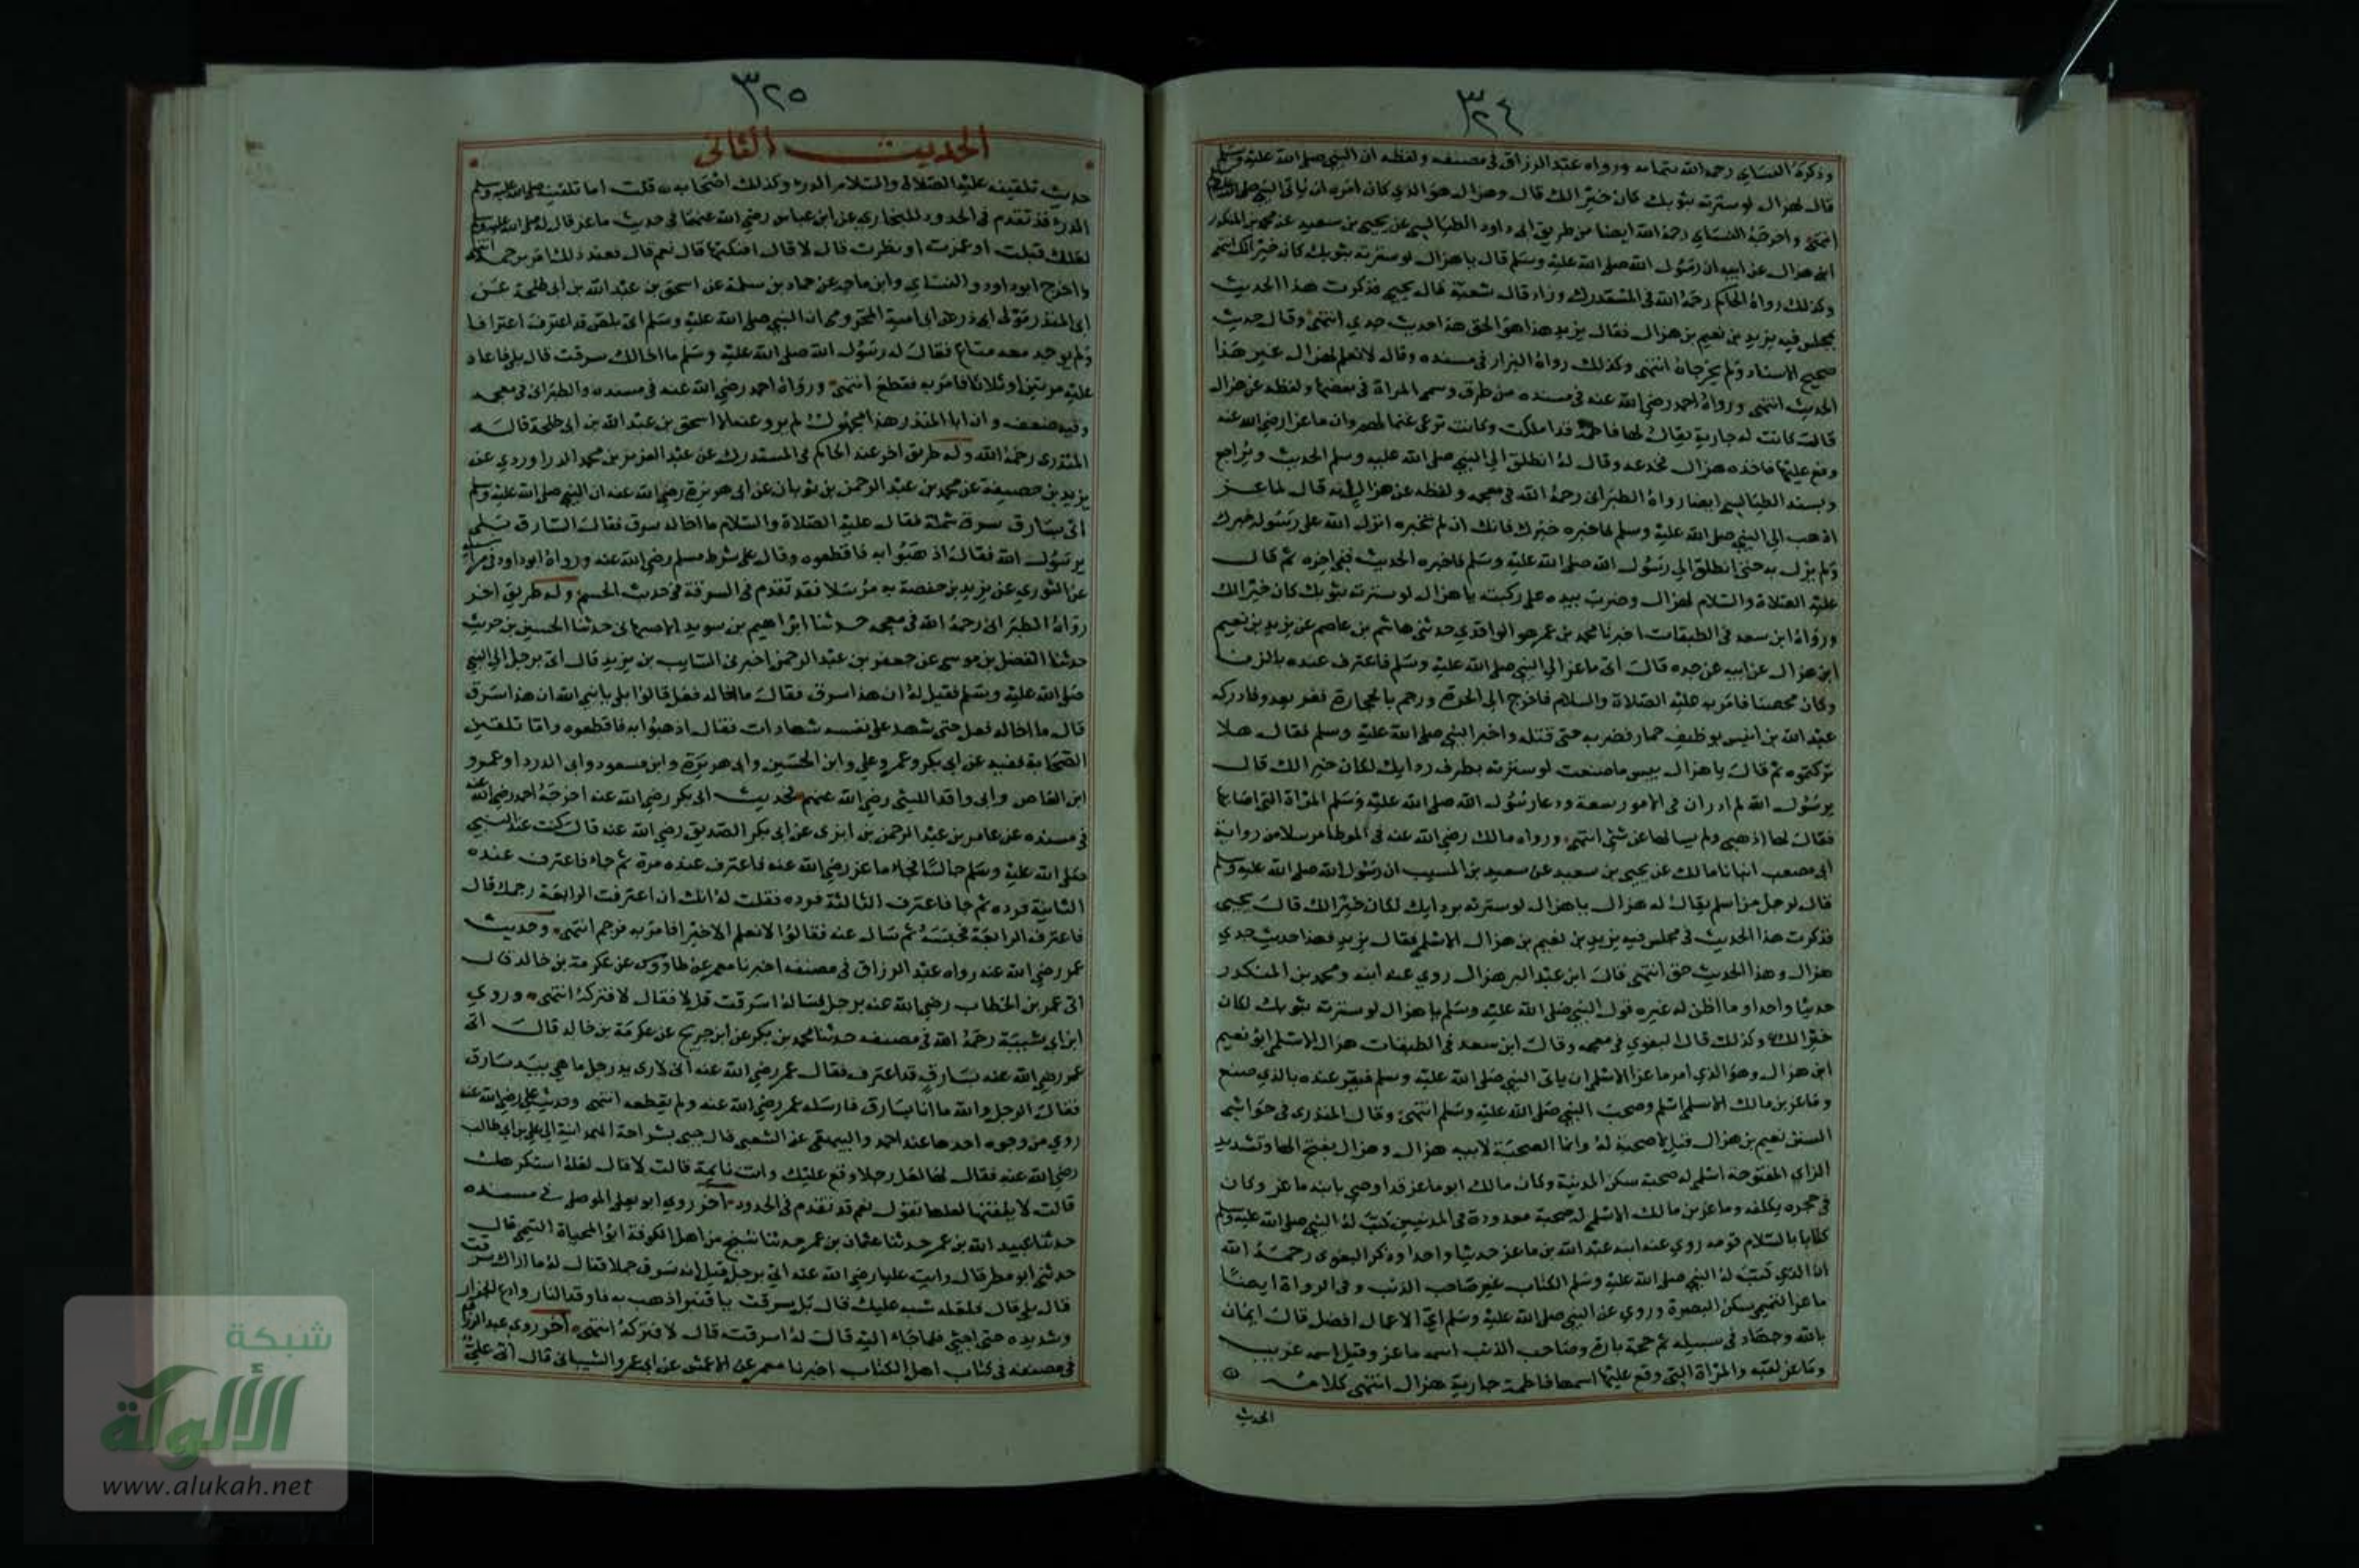 ٣٢٤
وذكره النساي رحمه الله بتمامه ورواه عبد الرزاق في مصنفه ولفظه ان النبي صلى الله عليه وسلم
قال لهزال لو سترته بثوبك كان خيرا لك قال وهزال هو الذي كان امره ان ياتي النبي صلى الله عليه وسلم
انتهى واخرجه النساي رحمه الله ايضا من طريق ابي داود الطيالسي عن يحيى بن سعيد عن محمد بن المنكدر
ابن هزال عن ابيه ان رسول الله صلى الله عليه وسلم قال يا هزال لو سترته بثوبك كان خيرا لك انتهى
وكذلك رواه الحاكم رحمه الله في المستدرك وزاد قال شعبة قال يحيى فذكرت هذا الحديث
بمجلس فيه يزيد بن نعيم بن هزال فقال يزيد هذا هو الحق هذا حديث جدي انتهى وقال حديث
صحيح الاسناد ولم يخرجاه انتهى وكذلك رواه البزار في مسنده وقال لا نعلم لهزال غير هذا
الحديث انتهى ورواه احمد رضي الله عنه في مسنده من طرق وسمى المراة في بعضها ولفظه عن هزال
قال كانت له جارية يقال لها فاطمة قد املكت وكانت ترعى غنما لهم وان ماعزا رضي الله عنه
وقع عليها فاخذه هزال فخدعه وقال له انطلق الى النبي صلى الله عليه وسلم الحديث ويراجع
وبسند الطيالسي ايضا رواه الطبراني رحمه الله في معجمه ولفظه عن هزال انه قال لماعز
اذهب الى النبي صلى الله عليه وسلم فاخبره خبرك فانك ان لم تخبره انزل الله على رسوله خبرك
ولم يزل به حتى انطلق الى رسول الله صلى الله عليه وسلم فاخبره الحديث ففي اخره ثم قال
عليه الصلاة والسلام لهزال وضرب بيده على ركبته يا هزال لو سترته بثوبك كان خيرا لك
ورواه ابن سعد في الطبقات اخبرنا محمد بن عمر هو الواقدي حدثني هاشم بن عاصم عن يزيد بن نعيم
ابن هزال عن ابيه عن جده قال اتى ماعز الى النبي صلى الله عليه وسلم فاعترف عنده بالزنا
وكان محصنا فامر به عليه الصلاة والسلام فاخرج الى الحرة ورجم بالحجارة ففر يعدو فادركه
عبد الله بن انيس بوظيف حمار فضربه حتى قتله واخبر النبي صلى الله عليه وسلم فقال هلا
تركتموه ثم قال يا هزال بيس ما صنعت لو سترته بطرف ردايك لكان خيرا لك قال
يرسول الله لم ادر ان في الامور سعة ودعا رسول الله صلى الله عليه وسلم المراة التي اصابها
فقال لها اذهبي ولم يسالها عن شي انتهى ورواه مالك رضي الله عنه في الموطا مرسلا من رواية
ابي مصعب انبانا مالك عن يحيى بن سعيد عن سعيد بن المسيب ان رسول الله صلى الله عليه وسلم
قال لرجل من اسلم يقال له هزال يا هزال لو سترته بردايك لكان خيرا لك قال يحيى
فذكرت هذا الحديث في مجلس فيه يزيد بن نعيم بن هزال الاسلمي فقال يزيد هذا حديث جدي
هزال وهذا الحديث حق انتهى قال ابن عبد البر هزال روي عنه ابنه ومحمد بن المنكدر
حديثا واحدا وما اظن له غيره قول النبي صلى الله عليه وسلم يا هزال لو سترته بثوبك لكان
خيرا لك وكذلك قال البغوي في معجمه وقال ابن سعد في الطبقات هزال الاسلمي ابو نعيم
ابن هزال وهو الذي امر ماعزا الاسلمي ان ياتي النبي صلى الله عليه وسلم فيقر عنده بالذي صنع
وماعز بن مالك الاسلمي اسلم وصحب النبي صلى الله عليه وسلم انتهى وقال المنذري في حواشي
السنن نعيم بن هزال قيل لا صحبة له وانما الصحبة لابيه هزال وهزال بفتح الها وتشديد
الزاي المفتوحة اسلمي له صحبة سكن المدينة وكان مالك ابو ماعز قد اوصى بابنه ماعز وكان
في حجره يكفله وماعز بن مالك الاسلمي له صحبة معدودة في المدنيين كتب له النبي صلى الله عليه وسلم
كتابا بالسلام قومه روي عنه ابنه عبد الله بن ماعز حديثا واحدا وذكر البغوي رحمه الله
ان الذي كتب له النبي صلى الله عليه وسلم الكتاب غير صاحب الذنب وفي الرواة ايضا
ماعز التميمي سكن البصرة وروي عن النبي صلى الله عليه وسلم اي الاعمال افضل قال ايمان
بالله وجهاد في سبيله ثم حجة بارة وصاحب الذنب اسمه ماعز وقيل اسمه غريب
وماعز لقبه والمراة التي وقع عليها اسمها فاطمة جارية هزال انتهى كلامه
الحديث
٣٢٥
الحديث الثاني
حديث تلقينه عليه الصلاة والسلام الدرء وكذلك اصحابه قلت اما تلقينه صلى الله عليه وسلم
الدرء فقد تقدم في الحدود للبخاري عن ابن عباس رضي الله عنهما في حديث ماعز قال له صلى الله عليه وسلم
لعلك قبلت او غمزت او نظرت قال لا قال افنكتها قال نعم قال فعند ذلك امر برجمه انتهى
واخرج ابو داود والنساي وابن ماجه عن حماد بن سلمة عن اسحق بن عبد الله بن ابي طلحة عن
ابي المنذر مولى ابي ذر عن ابي امية المخزومي ان النبي صلى الله عليه وسلم اتي بلص قد اعترف اعترافا
ولم يوجد معه متاع فقال له رسول الله صلى الله عليه وسلم ما اخالك سرقت قال بلى فاعاد
عليه مرتين او ثلاثا فامر به فقطع انتهى ورواه احمد رضي الله عنه في مسنده والطبراني في معجمه
وفيه ضعف وان ابا المنذر هذا مجهول لم يرو عنه الا اسحق بن عبد الله بن ابي طلحة قاله
المنذري رحمه الله وله طريق اخر عند الحاكم في المستدرك عن عبد العزيز بن محمد الدراوردي عن
يزيد بن خصيفة عن محمد بن عبد الرحمن بن ثوبان عن ابي هريرة رضي الله عنه ان النبي صلى الله عليه وسلم
اتي بسارق سرق شملة فقال عليه الصلاة والسلام ما اخاله سرق فقال السارق بلى
يرسول الله فقال اذهبوا به فاقطعوه وقال على شرط مسلم رضي الله عنه ورواه ابو داود في مراسيله
عن الثوري عن يزيد بن حفصة به مرسلا فقد تقدم في السرقة في حديث الحسم وله طريق اخر
رواه الطبراني رحمه الله في معجمه حدثنا ابراهيم بن سويد الاصبهاني حدثنا الحسين بن حريث
حدثنا الفضل بن موسى عن جعفر بن عبد الرحمن اخبرني السايب بن يزيد قال اتي برجل الى النبي
صلى الله عليه وسلم فقيل له ان هذا سرق فقال ما اخاله فعل قالوا بلى يا نبي الله ان هذا سرق
قال ما اخاله فعل حتى شهد على نفسه شهادات فقال اذهبوا به فاقطعوه واما تلقين
الصحابة ففيه عن ابي بكر وعمر وعلي وابن الحسين وابي هريرة وابن مسعود وابي الدردا وعمرو
ابن العاص وابي واقد الليثي رضي الله عنهم فحديث ابي بكر رضي الله عنه اخرجه احمد رضي الله عنه
في مسنده عن عامر بن عبد الرحمن بن ابزى عن ابي بكر الصديق رضي الله عنه قال كنت عند النبي
صلى الله عليه وسلم جالسا فجاء ماعز رضي الله عنه فاعترف عنده مرة ثم جاء فاعترف عنده
الثانية فرده ثم جا فاعترف الثالثة فرده فقلت له انك ان اعترفت الرابعة رجمك قال
فاعترف الرابعة فحبسه ثم سال عنه فقالوا لا نعلم الا خيرا فامر به فرجم انتهى وحديث
عمر رضي الله عنه رواه عبد الرزاق في مصنفه اخبرنا معمر عن طاووس عن عكرمة بن خالد قال
اتى عمر بن الخطاب رضي الله عنه برجل فساله اسرقت قل لا فقال لا فتركه انتهى وروي
ابن ابي شيبة رحمه الله في مصنفه حدثنا محمد بن بكر عن ابن جريج عن عكرمة بن خالد قال اتي
عمر رضي الله عنه بسارق قد اعترف فقال عمر رضي الله عنه اني لارى يد رجل ما هي بيد سارق
فقال الرجل والله ما انا بسارق فارسله عمر رضي الله عنه ولم يقطعه انتهى وحديث علي رضي الله عنه
روي من وجوه احدها عند احمد والبيهقي عن الشعبي قال جيى بشراحة الهمدانية الى علي بن ابي طالب
رضي الله عنه فقال لها لعل رجلا وقع عليك وانت نايمة قالت لا قال لعله استكرهك
قالت لا يلقنها لعلها تقول نعم قد تقدم في الحدود اخر روي ابو يعلى الموصلي في مسنده
حدثنا عبيد الله بن عمر حدثنا عثمان بن عمر حدثنا شيخ من اهل الكوفة ابو المحياة التيمي قال
حدثني ابو مطر قال رايت عليا رضي الله عنه اتي برجل قيل انه سرق جملا فقال له ما اراك سرقت
قال بلى قال فلعله شبه عليك قال بل سرقت يا قنبر اذهب به فاوقد النار وادع الجزار
وشد يده حتى اجيئ فلما جاء اليه قال له اسرقت قال لا فتركه انتهى اخر روي عبد الرزاق
في مصنفه في كتاب اهل الكتاب اخبرنا معمر عن الاعمش عن ابي عمرو الشيباني قال اتي علي
شبكة
الألوكة
www.alukah.net